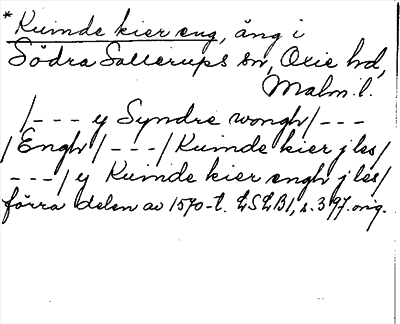 *Kuinde kier eng, äng i
Södra Sallerups sn, Oxie hd,
Malm. l.
/--- y Syndre wongh/---
/Engh/---/Kuinde kier j les/
---/y Kuinde kier engh j les/
förra delen av 1570-t. LSLB1, s. 397. orig.